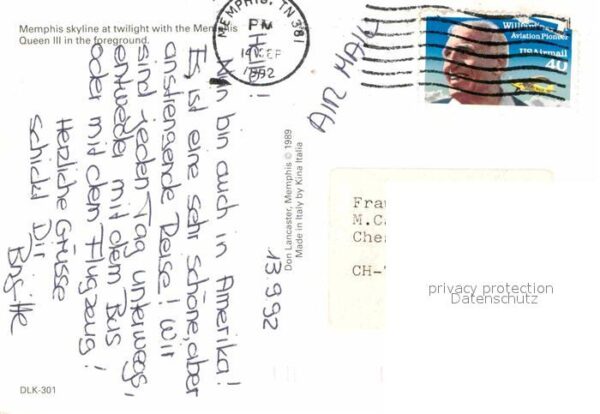 Memphis skyline at twilight with the Memphis
Queen III in the foreground.
MEMPHIS, TN 381
PM
14 SEP
1992
Aviation Pioneer
USAirmail
40
AIR MAIL
Hallo!
Nun bin auch in Amerika!
Es ist eine sehr schöne, aber
anstrengende Reise! Wir
sind jeden Tag unterwegs,
entweder mit dem Bus
oder mit dem Flugzeug!
Herzliche Grüsse
schickt Dir
13.9.92
Don Lancaster, Memphis © 1989
Made in Italy by Kina Italia
Frau
M.C.
CH-
privacy protection
Datenschutz
DLK-301